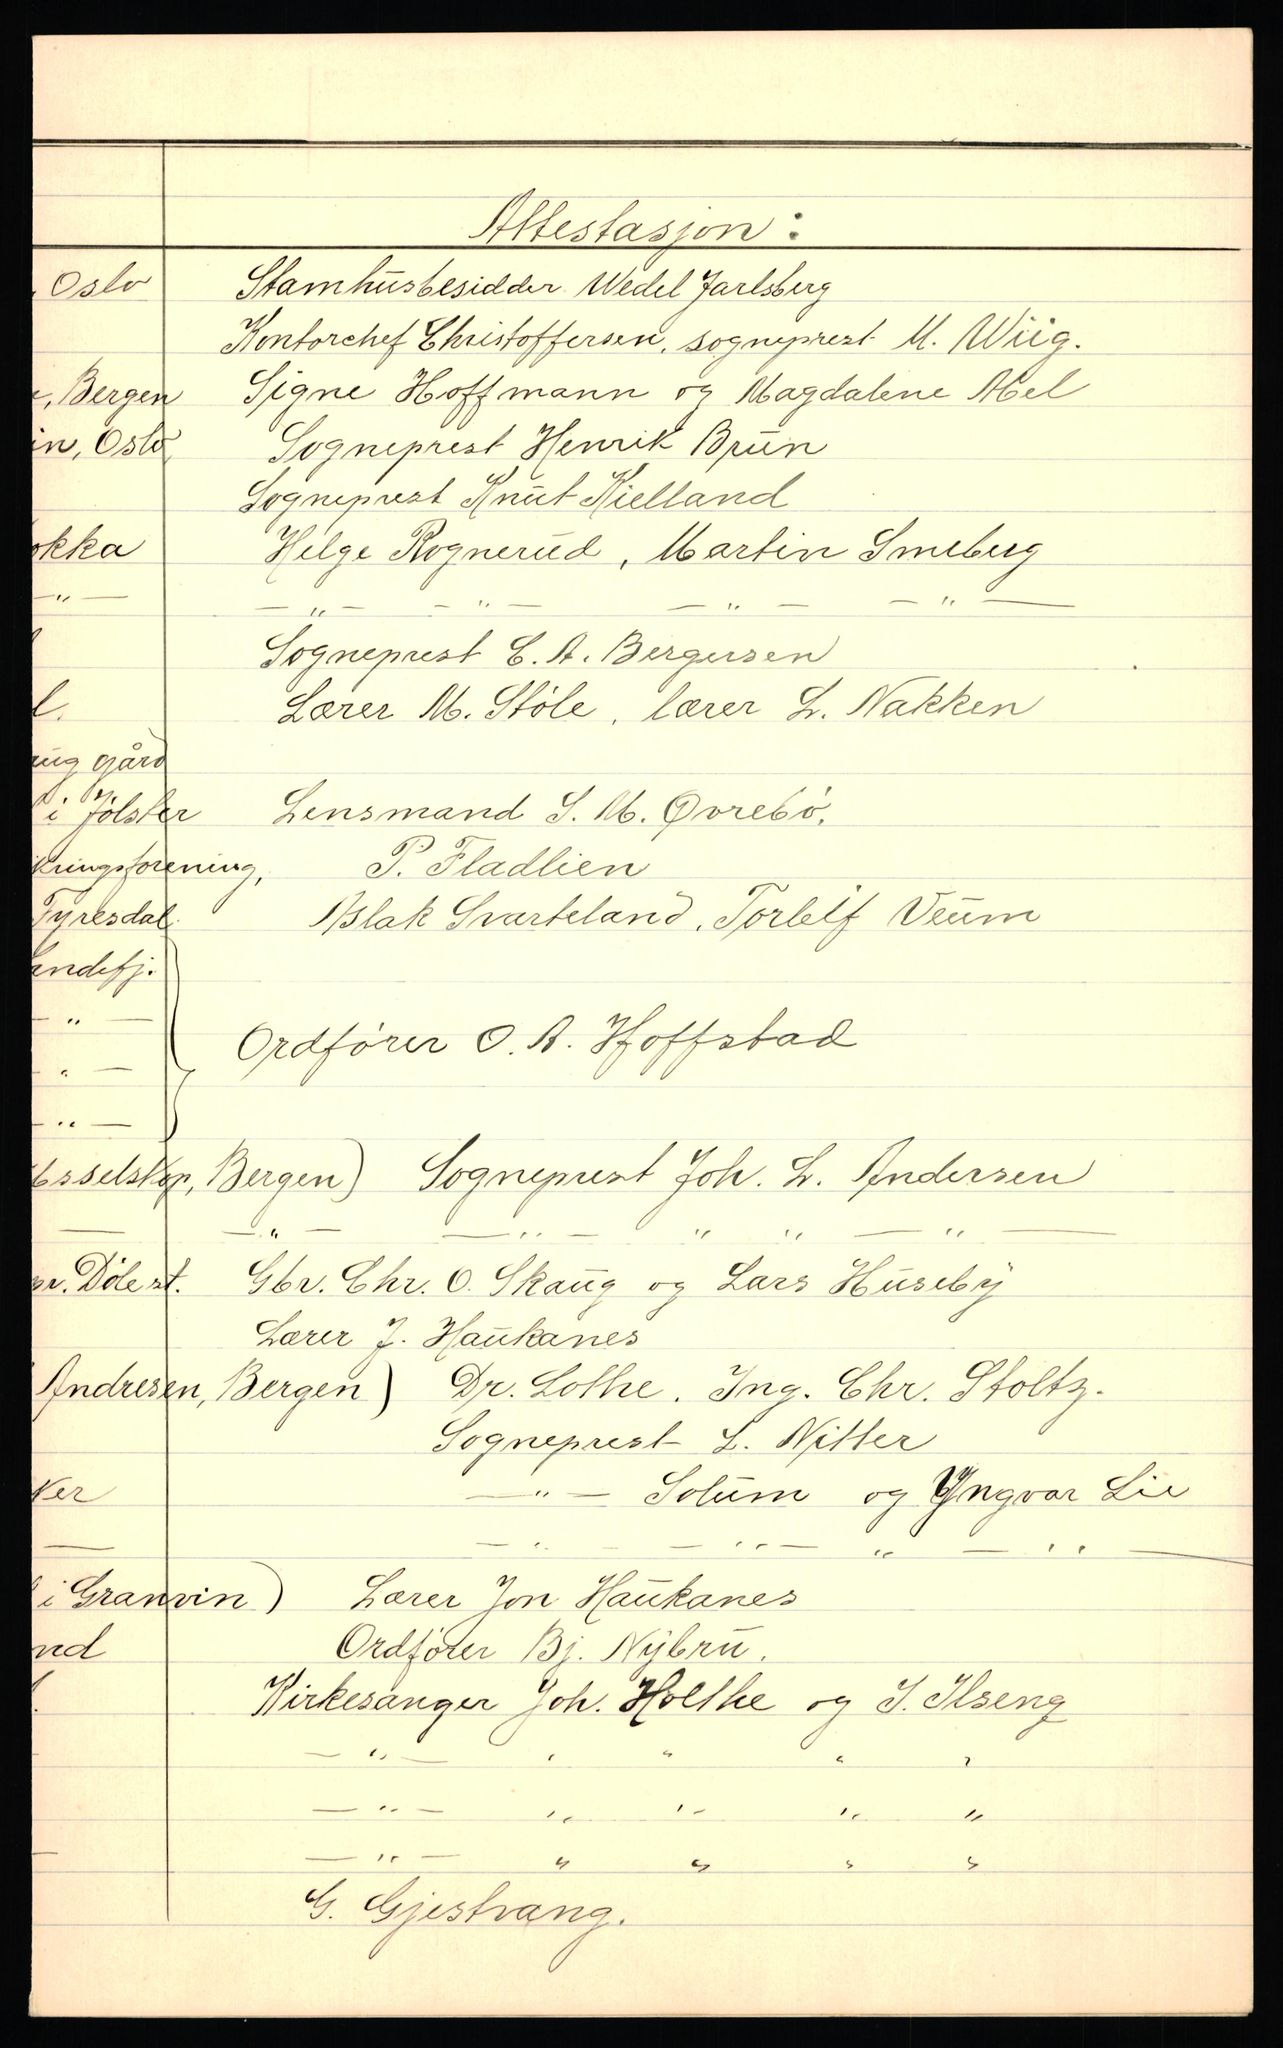 Attestasjon:
, Oslo Stamhusbesidder Wedel Jarlsberg
Kontorchef Christoffersen, sogneprest M. Wiig.
, Bergen Signe Hoffmann og Magdalene Abel
in, Oslo Sogneprest Henrik Brun
Sogneprest Knut Kielland
okka Helge Rognerud, Martin Smeberg
— " — — " — — " — — " — — " —
Sogneprest C. A. Bergersen
l. Lærer M. Støle, lærer L. Nakken
ug gård
i Jølster Lensmand S. M. Øvrebö.
kringsforening, P. Fladlien
Tyresdal Aslak Svarteland, Torleif Veum
andefj.
— " —
Ordfører O. A. Hoffstad
— " —
— " —
sselskap, Bergen) Sogneprest Joh. L. Andersen
— — " — — " — " " — " —
pr. Døle st. Gbr. Chr. O. Skaug og Lars Huseby
Lærer J. Haukanes
Andresen, Bergen) Dr. Lothe, Ing. Chr. Stoltz.
Sogneprest L. Nitter
ker — " — Solum og Yngvar Lie
— — " — — " — " — " —
i Granvin) Lærer Jon Haukanes
nd Ordfører Bj. Nybru.
Kirkesanger Joh. Holthe og I. Ilseng
— " — " " " "
— " — " " " "
— — " — " " " "
G. Gjestvang.